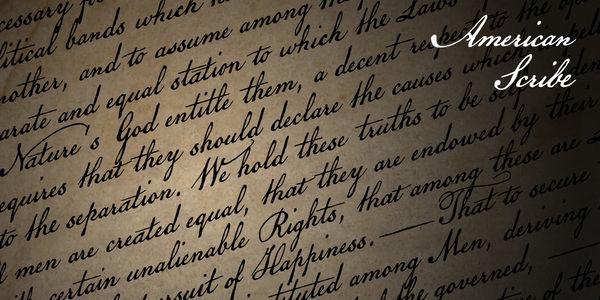 American
Scribe
cessary for
litical bands which
nother, and to assume among
arate and equal station to which the Laws
Nature's God entitle them, a decent respect to the
equires that they should declare the causes which
to the separation. We hold these truths to be
l men are created equal, that they are endowed by their
certain unalienable Rights, that among these are
rsuit of Happiness. — That to secure
tituted among Men, deriving
the governed, —
of the